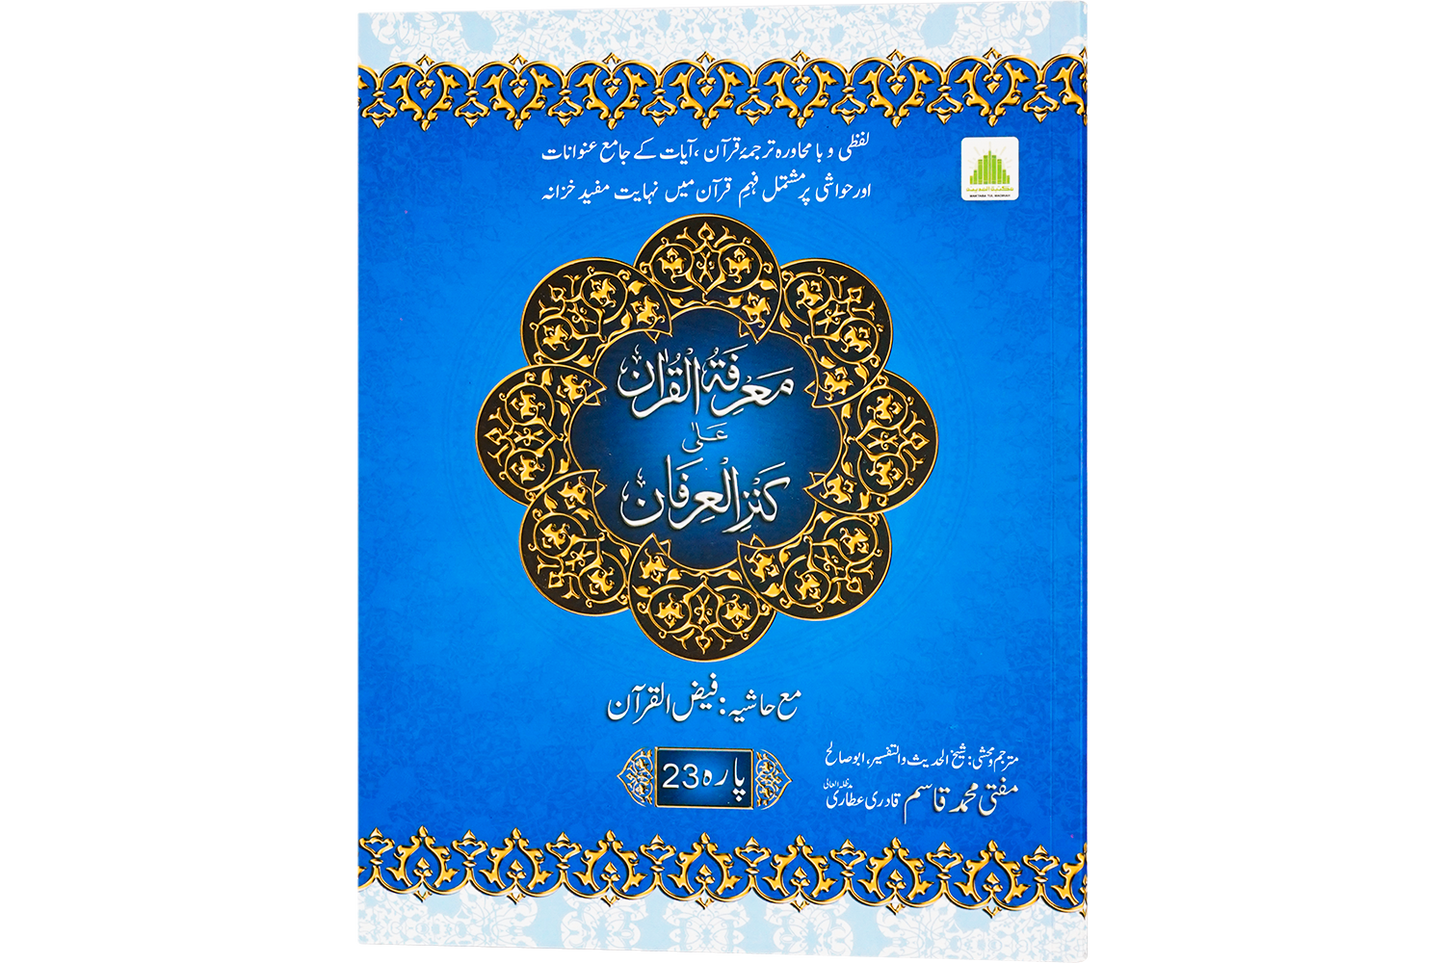 لفظی و با محاورہ ترجمۂ قرآن، آیات کے جامع عنوانات
اور حواشی پر مشتمل فہمِ قرآن میں نہایت مفید خزانہ
مکتبۃ المدینہ
MAKTABA TUL MADINAH
مَعْرِفَةُ الْقُرْاٰن
عَلٰی
كَنْزِ الْعِرفَان
مع حاشیہ: فیض القرآن
پارہ 23
مترجم و محشی: شیخ الحدیث والتفسیر، ابو صالح
مفتی محمد قاسم قادری عطاری مدظلہ العالی